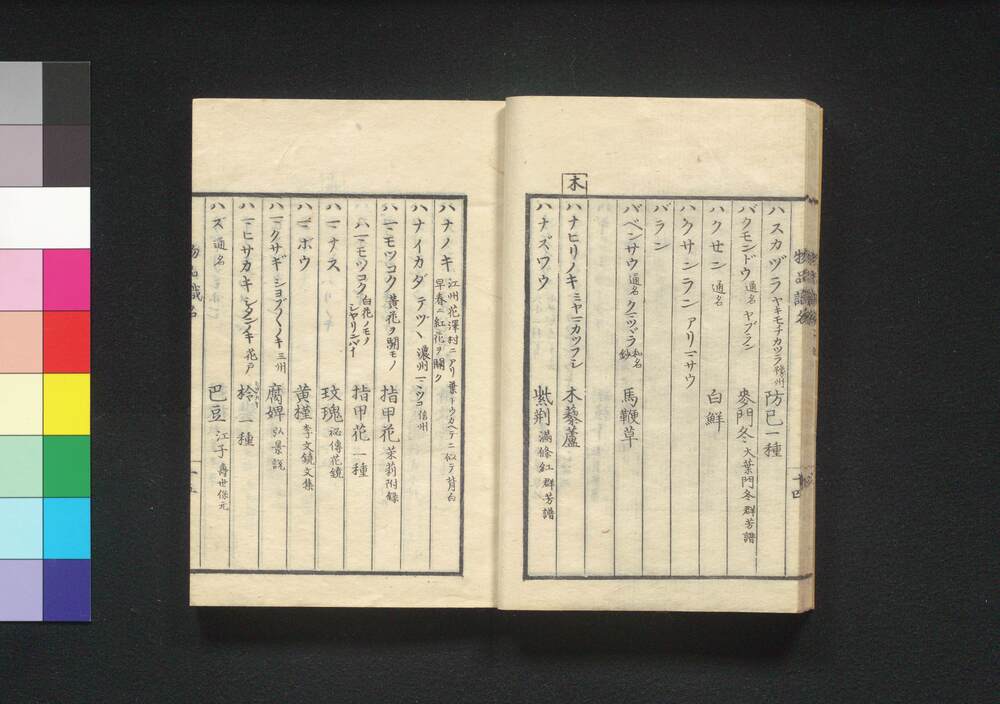 ハスカヅラ ヤキモチカツラ 防已一種
バクモンドウ 通名 ヤブラン 麥門冬 大葉門冬 群芳譜
ハクセン 通名 白鮮
ハクサンラン アリマサウ
バラン
バベンサウ 通名 クマツヅラ 和名鈔 馬鞭草
木
ハナヒリノキ ミヤマカツフシ 木藜蘆
ハナズワウ 紫荆 滿條紅 群芳譜
十四
ハナノキ 江州花澤村ニアリ葉トウカヘデニ似テ背白
早春ニ紅花ヲ開ク
ハナイカダ テヅヽ 濃州 マヽツコ 信州
ハマモツコク 黄花ヲ開モノ 指甲花 茉莉附録
ハマモツコク 白花ノモノ シヤリンバイ 指甲花一種
ハマナス 玫瑰 祕傳花鏡
ハマボウ 黄槿 李文鏡文集
ハマクサギ シヨブ〱ノキ 三州 腐婢 弘景說
ハマヒサカキ シタンノキ 花戸 柃一種
ハズ 通名 巴豆 江子 壽世保元
物品識名